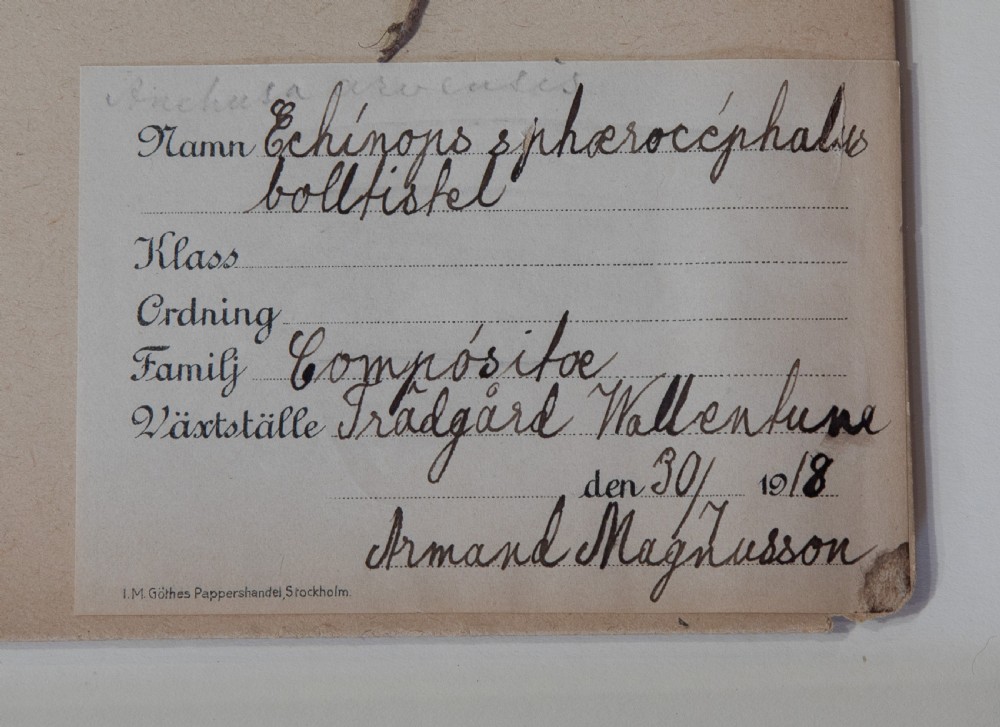 Anchusa arvensis
Namn Echínops sphærocéphalus
bolltistel
Klass
Ordning
Familj Compósitæ
Växtställe Trädgård Wallentuna
den 30/ 1918
Armand Magnusson
I.M. Göthes Pappershandel, Stockholm.